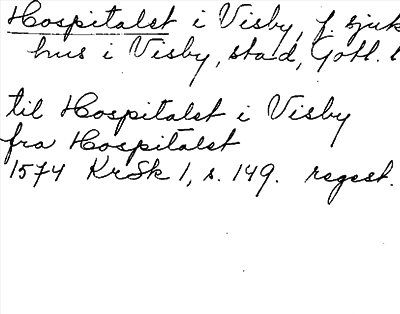 Hospitalet i Visby, f sjuk
hus i Visby, stad, Gotl. l
til Hospitalet i Visby
fra Hospitalet
1574 KrSk 1, s. 149. regest.